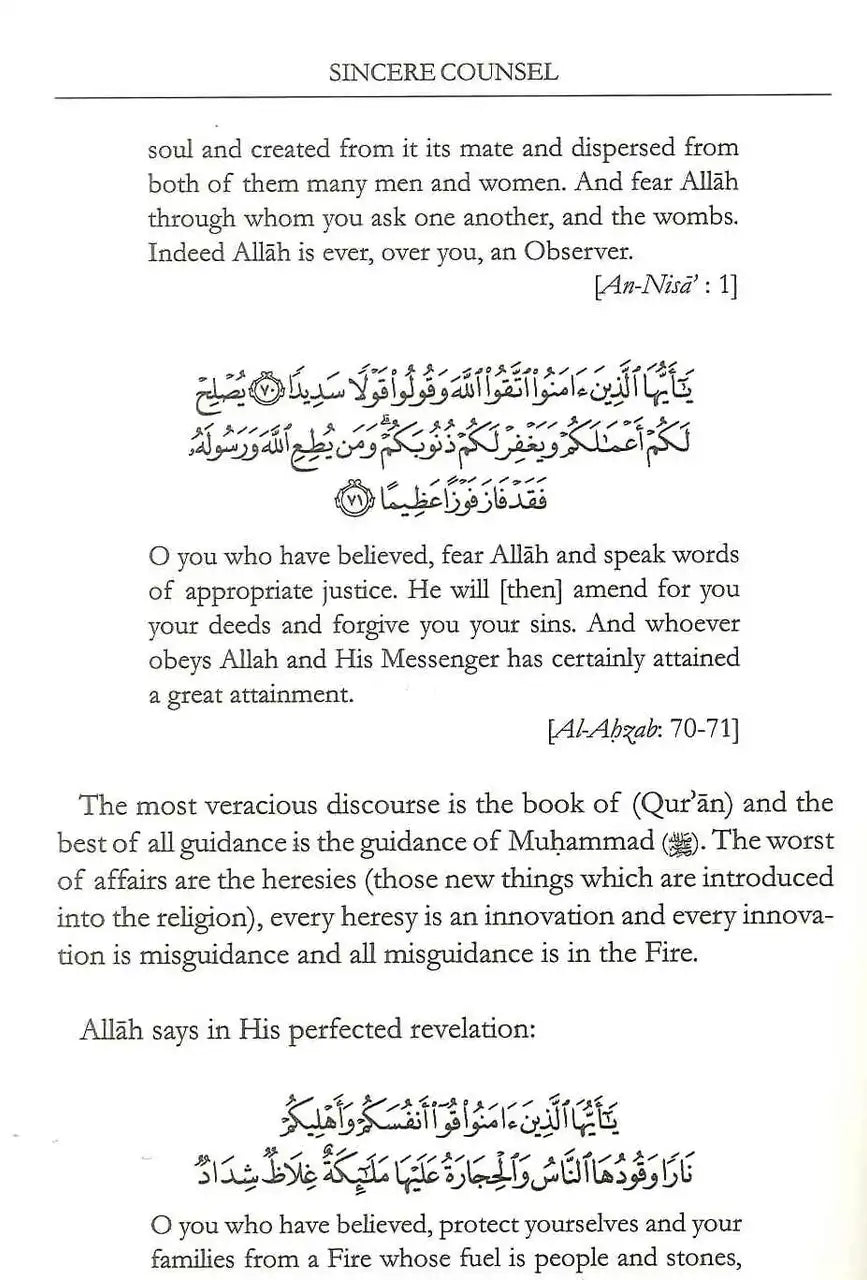 SINCERE COUNSEL
soul and created from it its mate and dispersed from
both of them many men and women. And fear Allāh
through whom you ask one another, and the wombs.
Indeed Allāh is ever, over you, an Observer.
[An-Nisā’ : 1]
يَٰٓأَيُّهَا ٱلَّذِينَ ءَامَنُوا۟ ٱتَّقُوا۟ ٱللَّهَ وَقُولُوا۟ قَوْلًا سَدِيدًا ٧٠ يُصْلِحْ
لَكُمْ أَعْمَٰلَكُمْ وَيَغْفِرْ لَكُمْ ذُنُوبَكُمْ ۗ وَمَن يُطِعِ ٱللَّهَ وَرَسُولَهُۥ
فَقَدْ فَازَ فَوْزًا عَظِيمًا ٧١
O you who have believed, fear Allāh and speak words
of appropriate justice. He will [then] amend for you
your deeds and forgive you your sins. And whoever
obeys Allah and His Messenger has certainly attained
a great attainment.
[Al-Aḥzab: 70-71]
The most veracious discourse is the book of (Qur’ān) and the
best of all guidance is the guidance of Muḥammad (ﷺ). The worst
of affairs are the heresies (those new things which are introduced
into the religion), every heresy is an innovation and every innova-
tion is misguidance and all misguidance is in the Fire.
Allāh says in His perfected revelation:
يَٰٓأَيُّهَا ٱلَّذِينَ ءَامَنُوا۟ قُوٓا۟ أَنفُسَكُمْ وَأَهْلِيكُمْ
نَارًا وَقُودُهَا ٱلنَّاسُ وَٱلْحِجَارَةُ عَلَيْهَا مَلَٰٓئِكَةٌ غِلَاظٌ شِدَادٌ
O you who have believed, protect yourselves and your
families from a Fire whose fuel is people and stones,